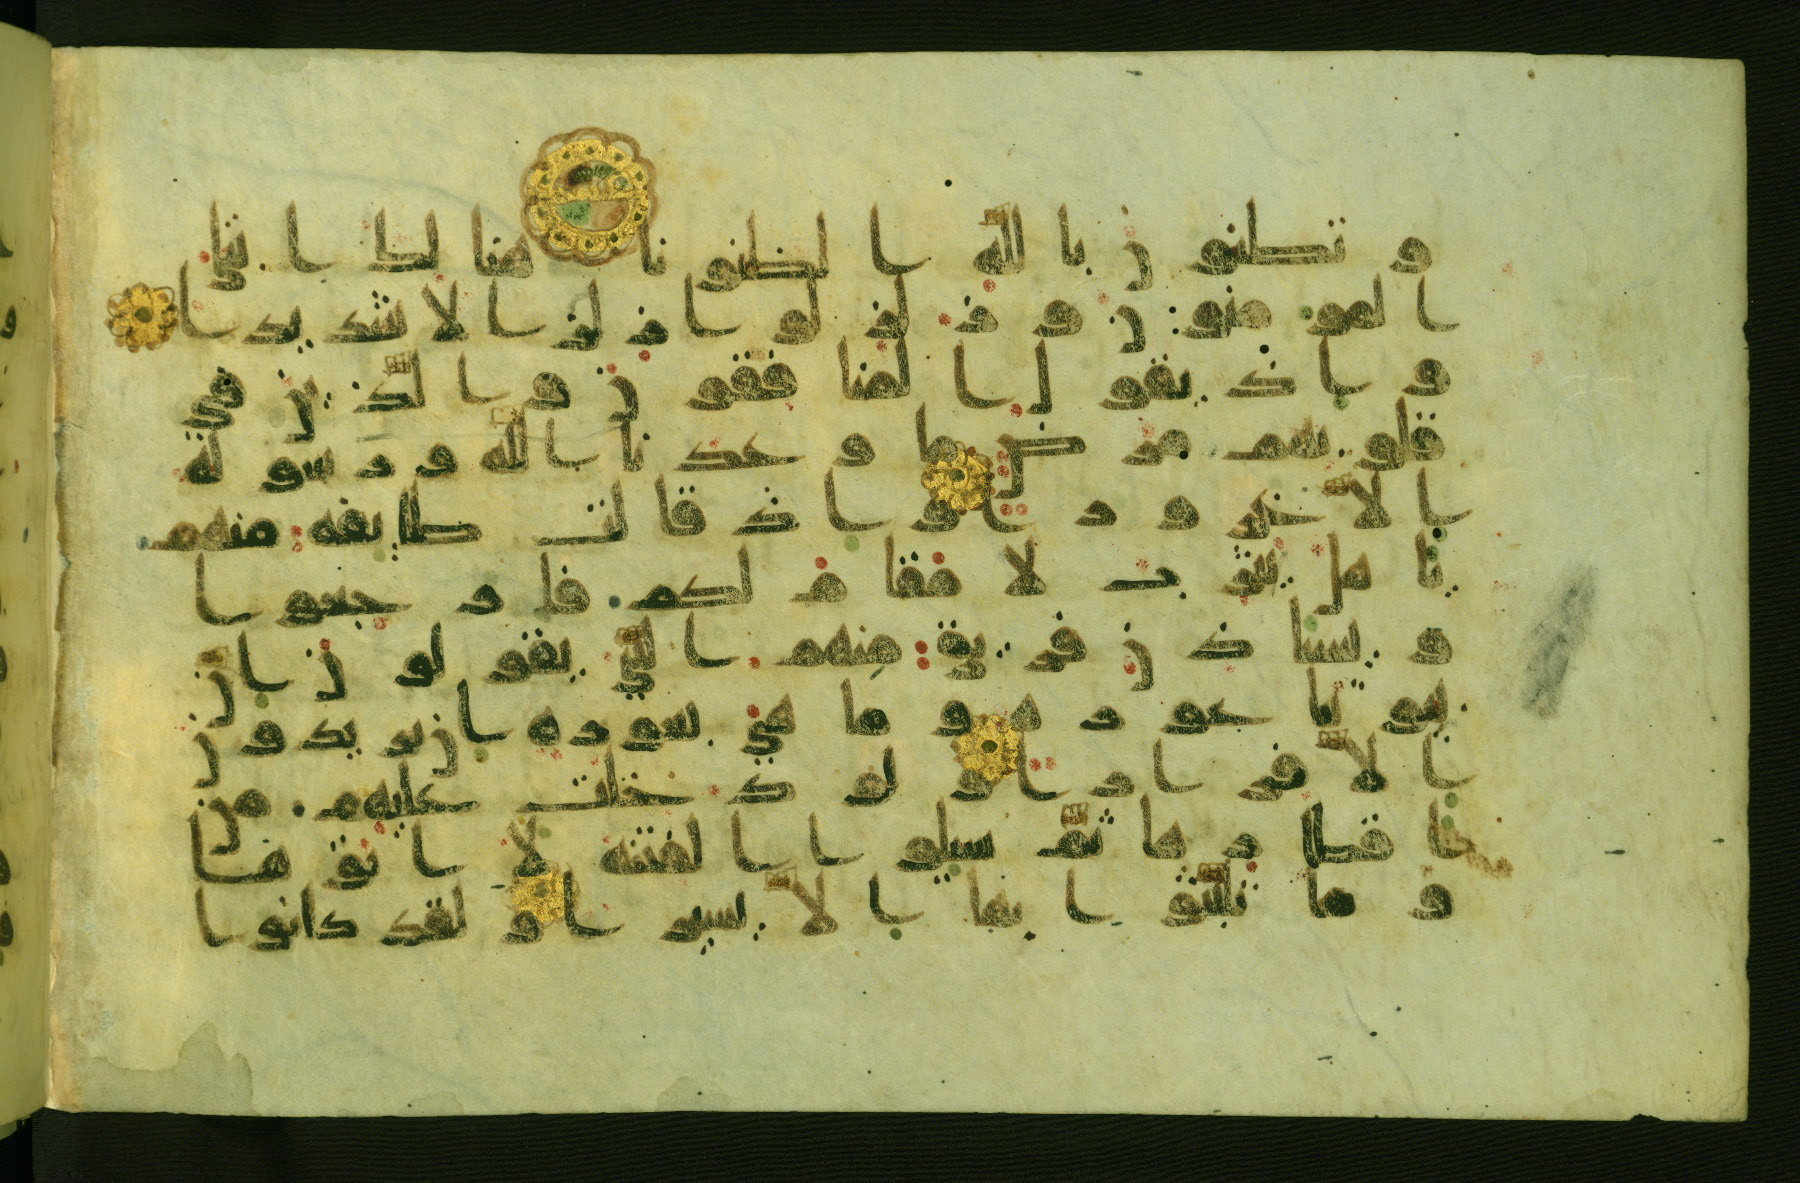 و تظنو ن با لله ا لظنو نا هنا لك ا بتلي
ا لمو منو ن و ز لز لو ا ز لز ا لا شد يد ا
و ا ذ يقو ل ا لمنا فقو ن و ا لذ ين في
قلو بهم مر ض ما و عد نا ا لله و ر سو له
ا لا غر و ر ا و ا ذ قا لت طا يفه منهم
يا هل يثر ب لا مقا م لكم فا ر جعو ا
و يستا ذ ن فر يق منهم ا لنبي يقو لو ن ا ن
بيو تنا عو ر ه و ما هي بعو ر ه ا ن ير يد و ن
ا لا فر ا ر ا و لو د خلت عليهم من
ا قطا ر ها ثم سيلو ا ا لفتنه لا تو ها
و ما تلبثو ا بها ا لا يسير ا و لقد كا نو ا